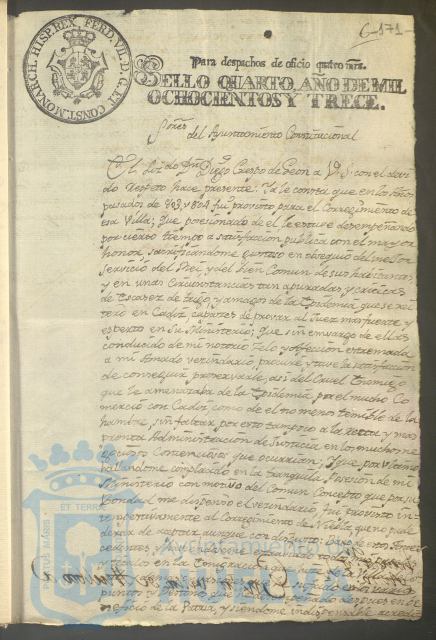 C-171-
FERD. VII. D. G. ET CONST. MONARCH. HISP. REX.
Para despachos de oficio quatro mrs.
SELLO QUARTO, AÑO DE MIL
OCHOCIENTOS Y TRECE.
Sores del Ayuntamiento Constitucional
El Lizdo Dn Diego Crespo de Leon a V.S. con el devi
do respeto hace presente: Ya le consta que en los años
pasados de 803, y 804 fui provisto para el Corregimiento de
esa Villa; que posesionado de el le estuve desempeñando
por cierto tiempo a satisfaccion publica con el mayor
honor, sacrificandome gustoso en obsequio del mejor
Servicio del Rei, y del bien Comun de sus habitantes
y en unas circunstancias tan apuradas y criticas
de escasez de trigo, y amagos de la Epidemia que se rei
tero en Cadiz, capaces de provar al Juez mas fuerte, y
esperto en su Ministerio; que sin embargo de ellas
conducido de mi notorio zelo, y afeccion estremada
a mi amado vecindario, procure, y tuve la satisfaccion
de conseguir preservarle, asi del cruel enemigo
que le amenazaba de la Epidemia por el mucho Co
mercio con Cadiz, como de el no menos temible de la
hambre, sin faltar por esto tampoco a la recta, y mas
pronta Administracion de Justicia en los muchos ne
gocios contenciosos que ocurrian; Y que por ultimo
hallandome complacido en la tranquila posesion de mi
Ministerio con motivo del comun concepto que por su
bondad me dispensò el vecindario, fui provisto in
tempestivamente al Corregimiento de Niebla, que no pude
dexar de aceptar aunque con disgusto: Bajo de estos Antece
dentes,
en la
puntos y
neficio de la Patria, y siendome indispensable
PORTUS MARIS ET TERRAE
Ayuntamiento